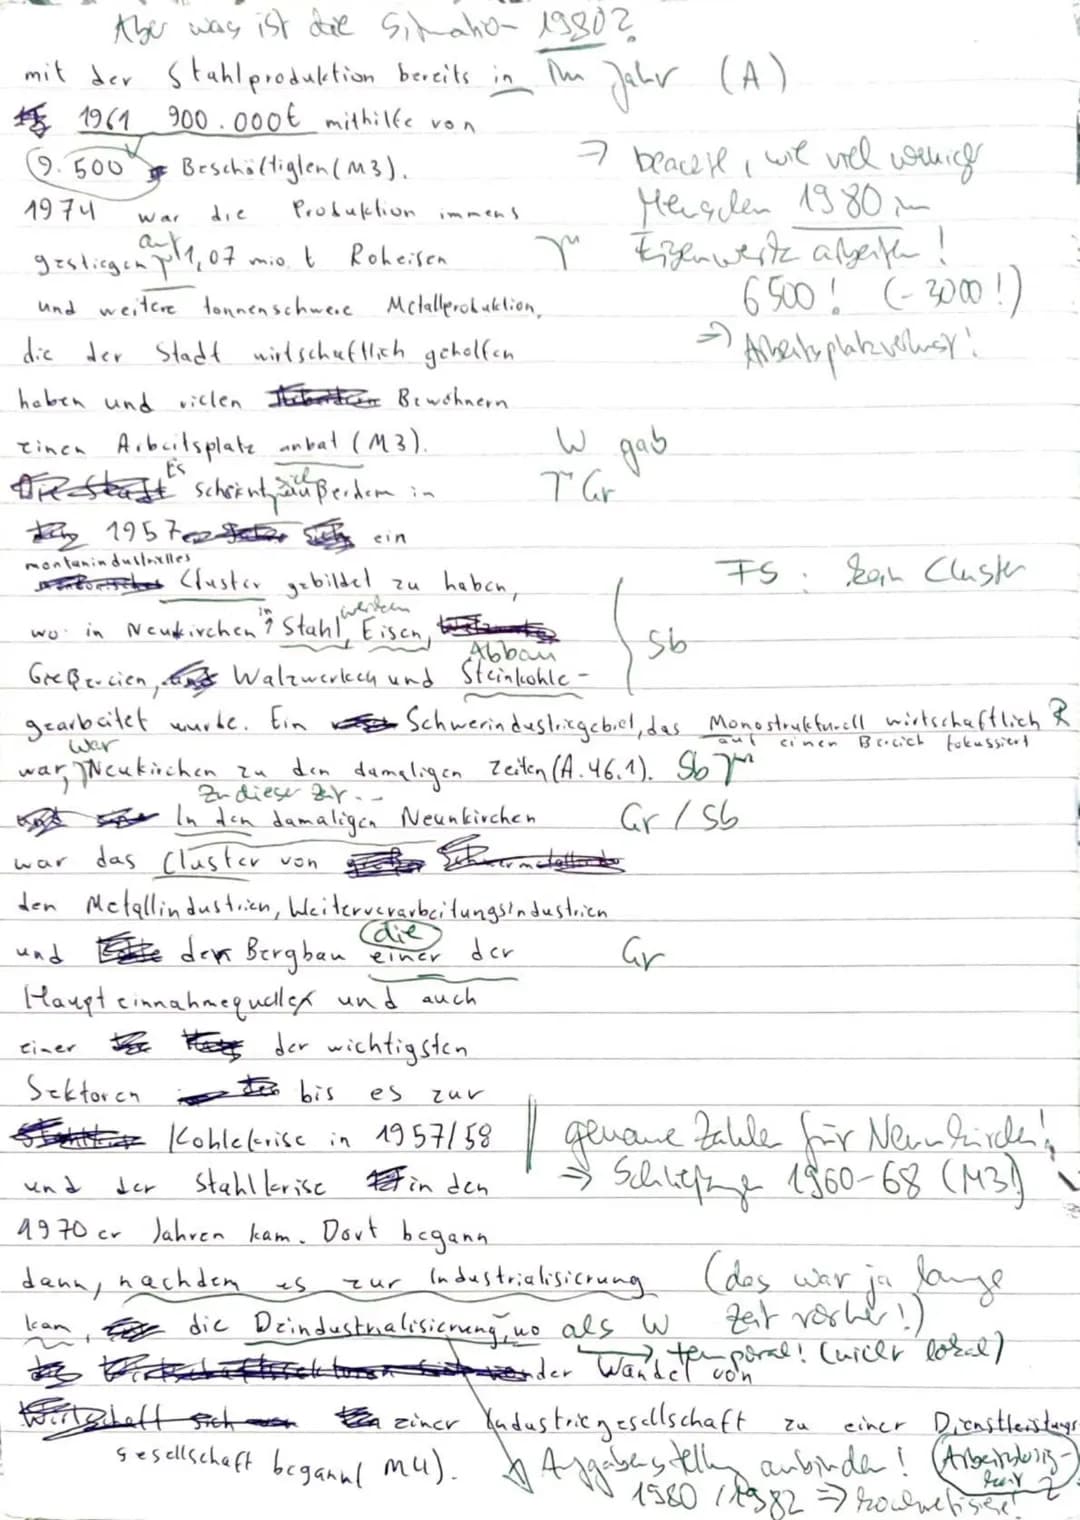 Aber was ist die Situation 1980?
mit der Stahlproduktion bereits in Im Jahr (A)
1961 900.000t mithilfe von
9.500 Beschäftigten (M3).
⇒ beachte, wie viel weniger
Menschen 1980 im
Eisenwerk arbeiten!
6500! (-3000!)
⇒ Arbeitsplatzverlust!
1974 war die Produktion immens
gestiegen auf 1,07 mio. t Roheisen
und weitere tonnenschwere Metallproduktion,
die der Stadt wirtschaftlich geholfen
haben und vielen Bewohnern
einen Arbeitsplatz anbat (M3). W gab
Es scheint sich außerdem in Gr
1957 ein
montanindustrielles
Cluster gebildet zu haben, FS: kein Cluster
wo in Neukirchen in Stahl, Eisen, werden Sb
Abbau
Greßereien, Walzwerken und Steinkohle-
gearbeitet wurde. Ein Schwerindustriegebiet, das Monostrukturell wirtschaftlich R
auf einen Bereich fokussiert
war, war Neukirchen zu den damaligen Zeiten (A.46.1). Sb
Zu dieser Zeit...
In den damaligen Neunkirchen Gr / Sb
war das Cluster von
den Metallindustrien, Weiterverarbeitungsindustrien
und den Bergbau einer der Gr
die
Haupteinnahmequellen und auch
einer der wichtigsten
Sektoren bis es zur
Kohlekrise in 1957/58 genaue Zahlen für Neunkirchen!
und der Stahlkrise in den ⇒ Schließungen 1960-68 (M3!)
1970er Jahren kam. Dort begann
dann, nachdem es zur Industrialisierung (das war ja lange
kam, die Deindustrialisierung, wo als W Zeit vorher!)
→ temporal! (nicht lokal)
der Wandel von
einer Industriegesellschaft zu einer Dienstleistungs-
gesellschaft begann (M4). Aufgabenstellung anbinden! (Arbeitslosig-
keit
1980 / 1982 ⇒ konkretisiere!